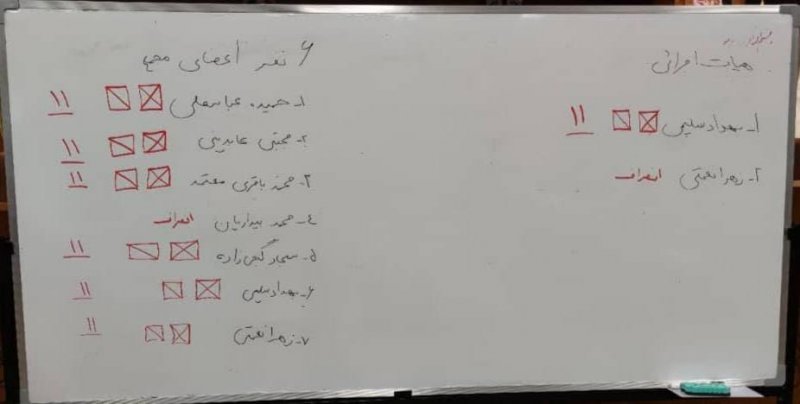 هیات اجرائی
۱- بهداد سلیمی ۱۱
۲- زهرا نعمتی انصراف
۶ نفر اعضای مجمع
۱- حمیده عباسعلی ۱۱
۲- مجتبی عابدینی ۱۱
۳- محمد باقری معتمد ۱۱
۴- محمد بیداریان انصراف
۵- سجاد گنج زاده ۱۱
۶- بهداد سلیمی ۱۱
۷- زهرا نعمتی ۱۱